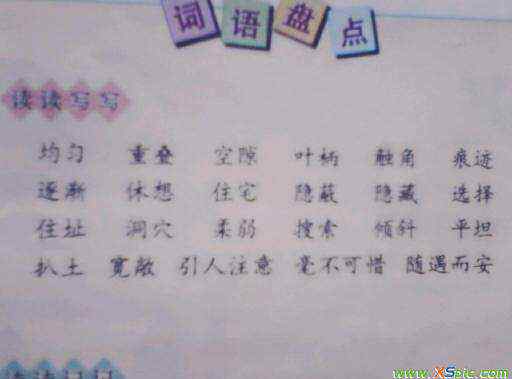 词语盘点
读读写写
均匀 重叠 空隙 叶柄 触角 痕迹
逐渐 休想 住宅 隐蔽 隐藏 选择
住址 洞穴 柔弱 搜索 倾斜 平坦
扒土 宽敞 引人注意 毫不可惜 随遇而安
www.XSpic.com